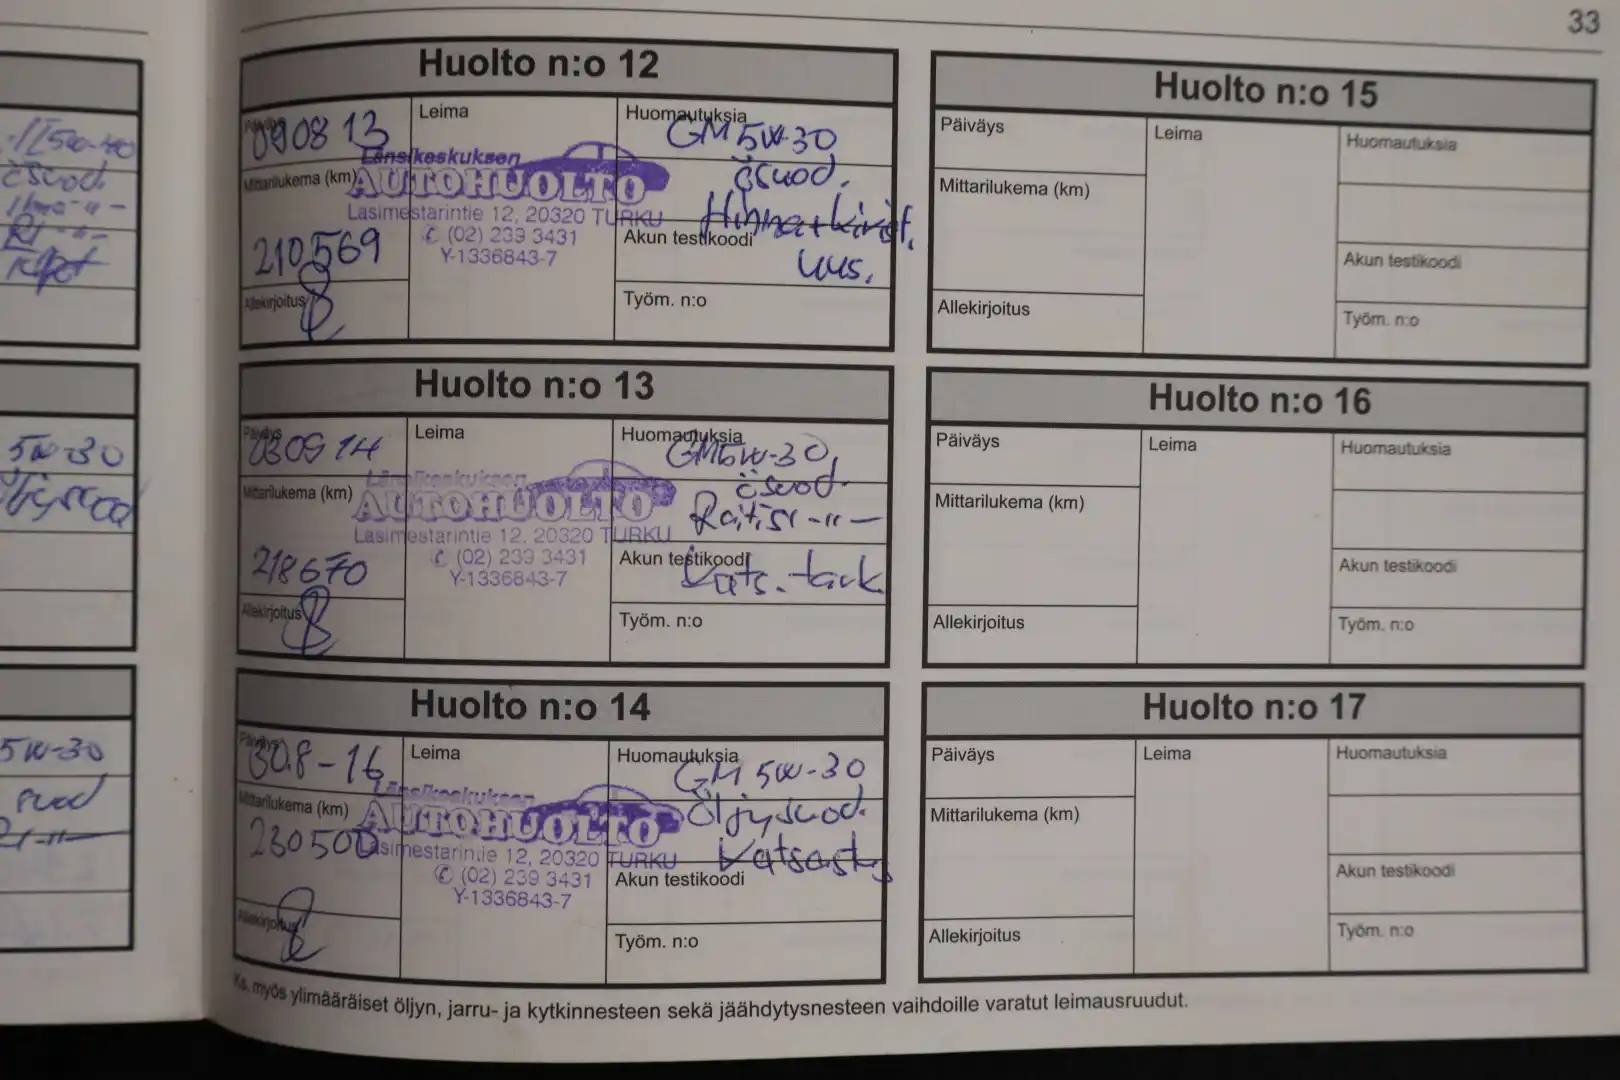 33
Huolto n:o 12
Päiväys
090813
Mittarilukema (km)
210569
Allekirjoitus
Leima
Länsikeskuksen
AUTOHUOLTO
Lasimestarintie 12, 20320 TURKU
✆ (02) 239 3431
Y-1336843-7
Huomautuksia
GM 5W-30
ösuod.
Akun testikoodi
uus.
Työm. n:o
Huolto n:o 13
Päiväys
030914
Mittarilukema (km)
218670
Allekirjoitus
Leima
Länsikeskuksen
AUTOHUOLTO
Lasimestarintie 12, 20320 TURKU
✆ (02) 239 3431
Y-1336843-7
Huomautuksia
GM5W-30,
ösuod.
Raitisi -"-
Akun testikoodi
Kats. tark.
Työm. n:o
Huolto n:o 14
Päiväys
30.8-16
Mittarilukema (km)
230500
Allekirjoitus
Leima
Länsikeskuksen
AUTOHUOLTO
Lasimestarintie 12, 20320 TURKU
✆ (02) 239 3431
Y-1336843-7
Huomautuksia
GM 5W-30
Öljysuod.
Katsast
Akun testikoodi
Työm. n:o
Huolto n:o 15
Päiväys
Mittarilukema (km)
Allekirjoitus
Leima
Huomautuksia
Akun testikoodi
Työm. n:o
Huolto n:o 16
Päiväys
Mittarilukema (km)
Allekirjoitus
Leima
Huomautuksia
Akun testikoodi
Työm. n:o
Huolto n:o 17
Päiväys
Mittarilukema (km)
Allekirjoitus
Leima
Huomautuksia
Akun testikoodi
Työm. n:o
Ks. myös ylimääräiset öljyn, jarru- ja kytkinnesteen sekä jäähdytysnesteen vaihdoille varatut leimausruudut.
5W-40
ösuod.
5W-30
Öljysuod
5W-30
suod